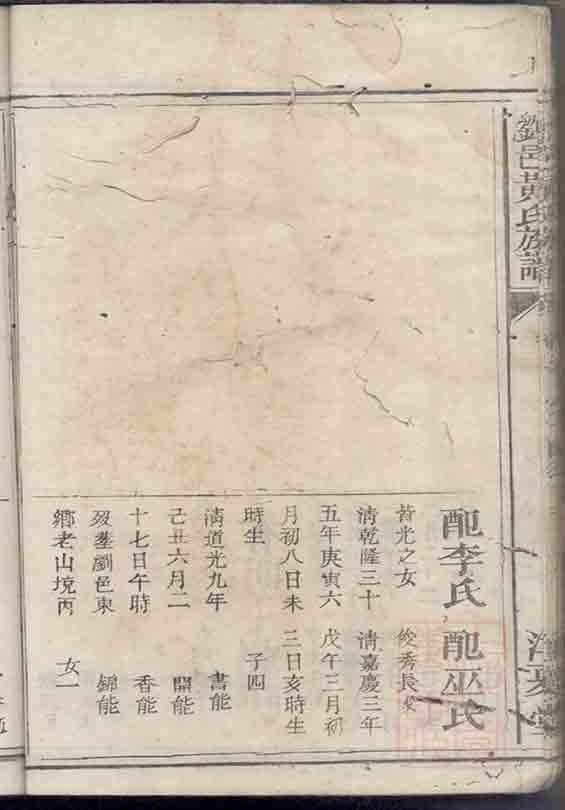 瀏邑黃氏族譜
江夏堂
配李氏
苔光之女
清乾隆三十
五年庚寅六
月初八日未
時生
清道光九年
己丑六月二
十七日午時
殁塟瀏邑東
鄉老山塝丙
配巫氏
俊秀長女
清嘉慶三年
戊午三月初
三日亥時生
子四
書能
開能
香能
錦能
女一